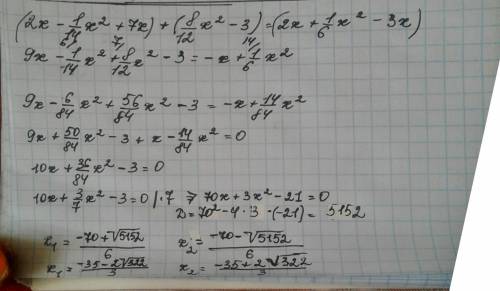 (2x - 1/14 x² + 7x) + (8/12 x² - 3) = (2x + 1/6 x² - 3x)
6/ 7/ 14/
9x - 1/14 x² + 8/12 x² - 3 = -x + 1/6 x²
9x - 6/84 x² + 56/84 x² - 3 = -x + 14/84 x²
9x + 50/84 x² - 3 + x - 14/84 x² = 0
10x + 36/84 x² - 3 = 0
10x + 3/7 x² - 3 = 0 | · 7 ⇒ 70x + 3x² - 21 = 0
D = 70² - 4 · 3 · (-21) = 5152
x₁ = (-70 + √5152)/6 x₂ = (-70 - √5152)/6
x₁ = (-35 - 2√322)/3 x₂ = (-35 + 2√322)/3